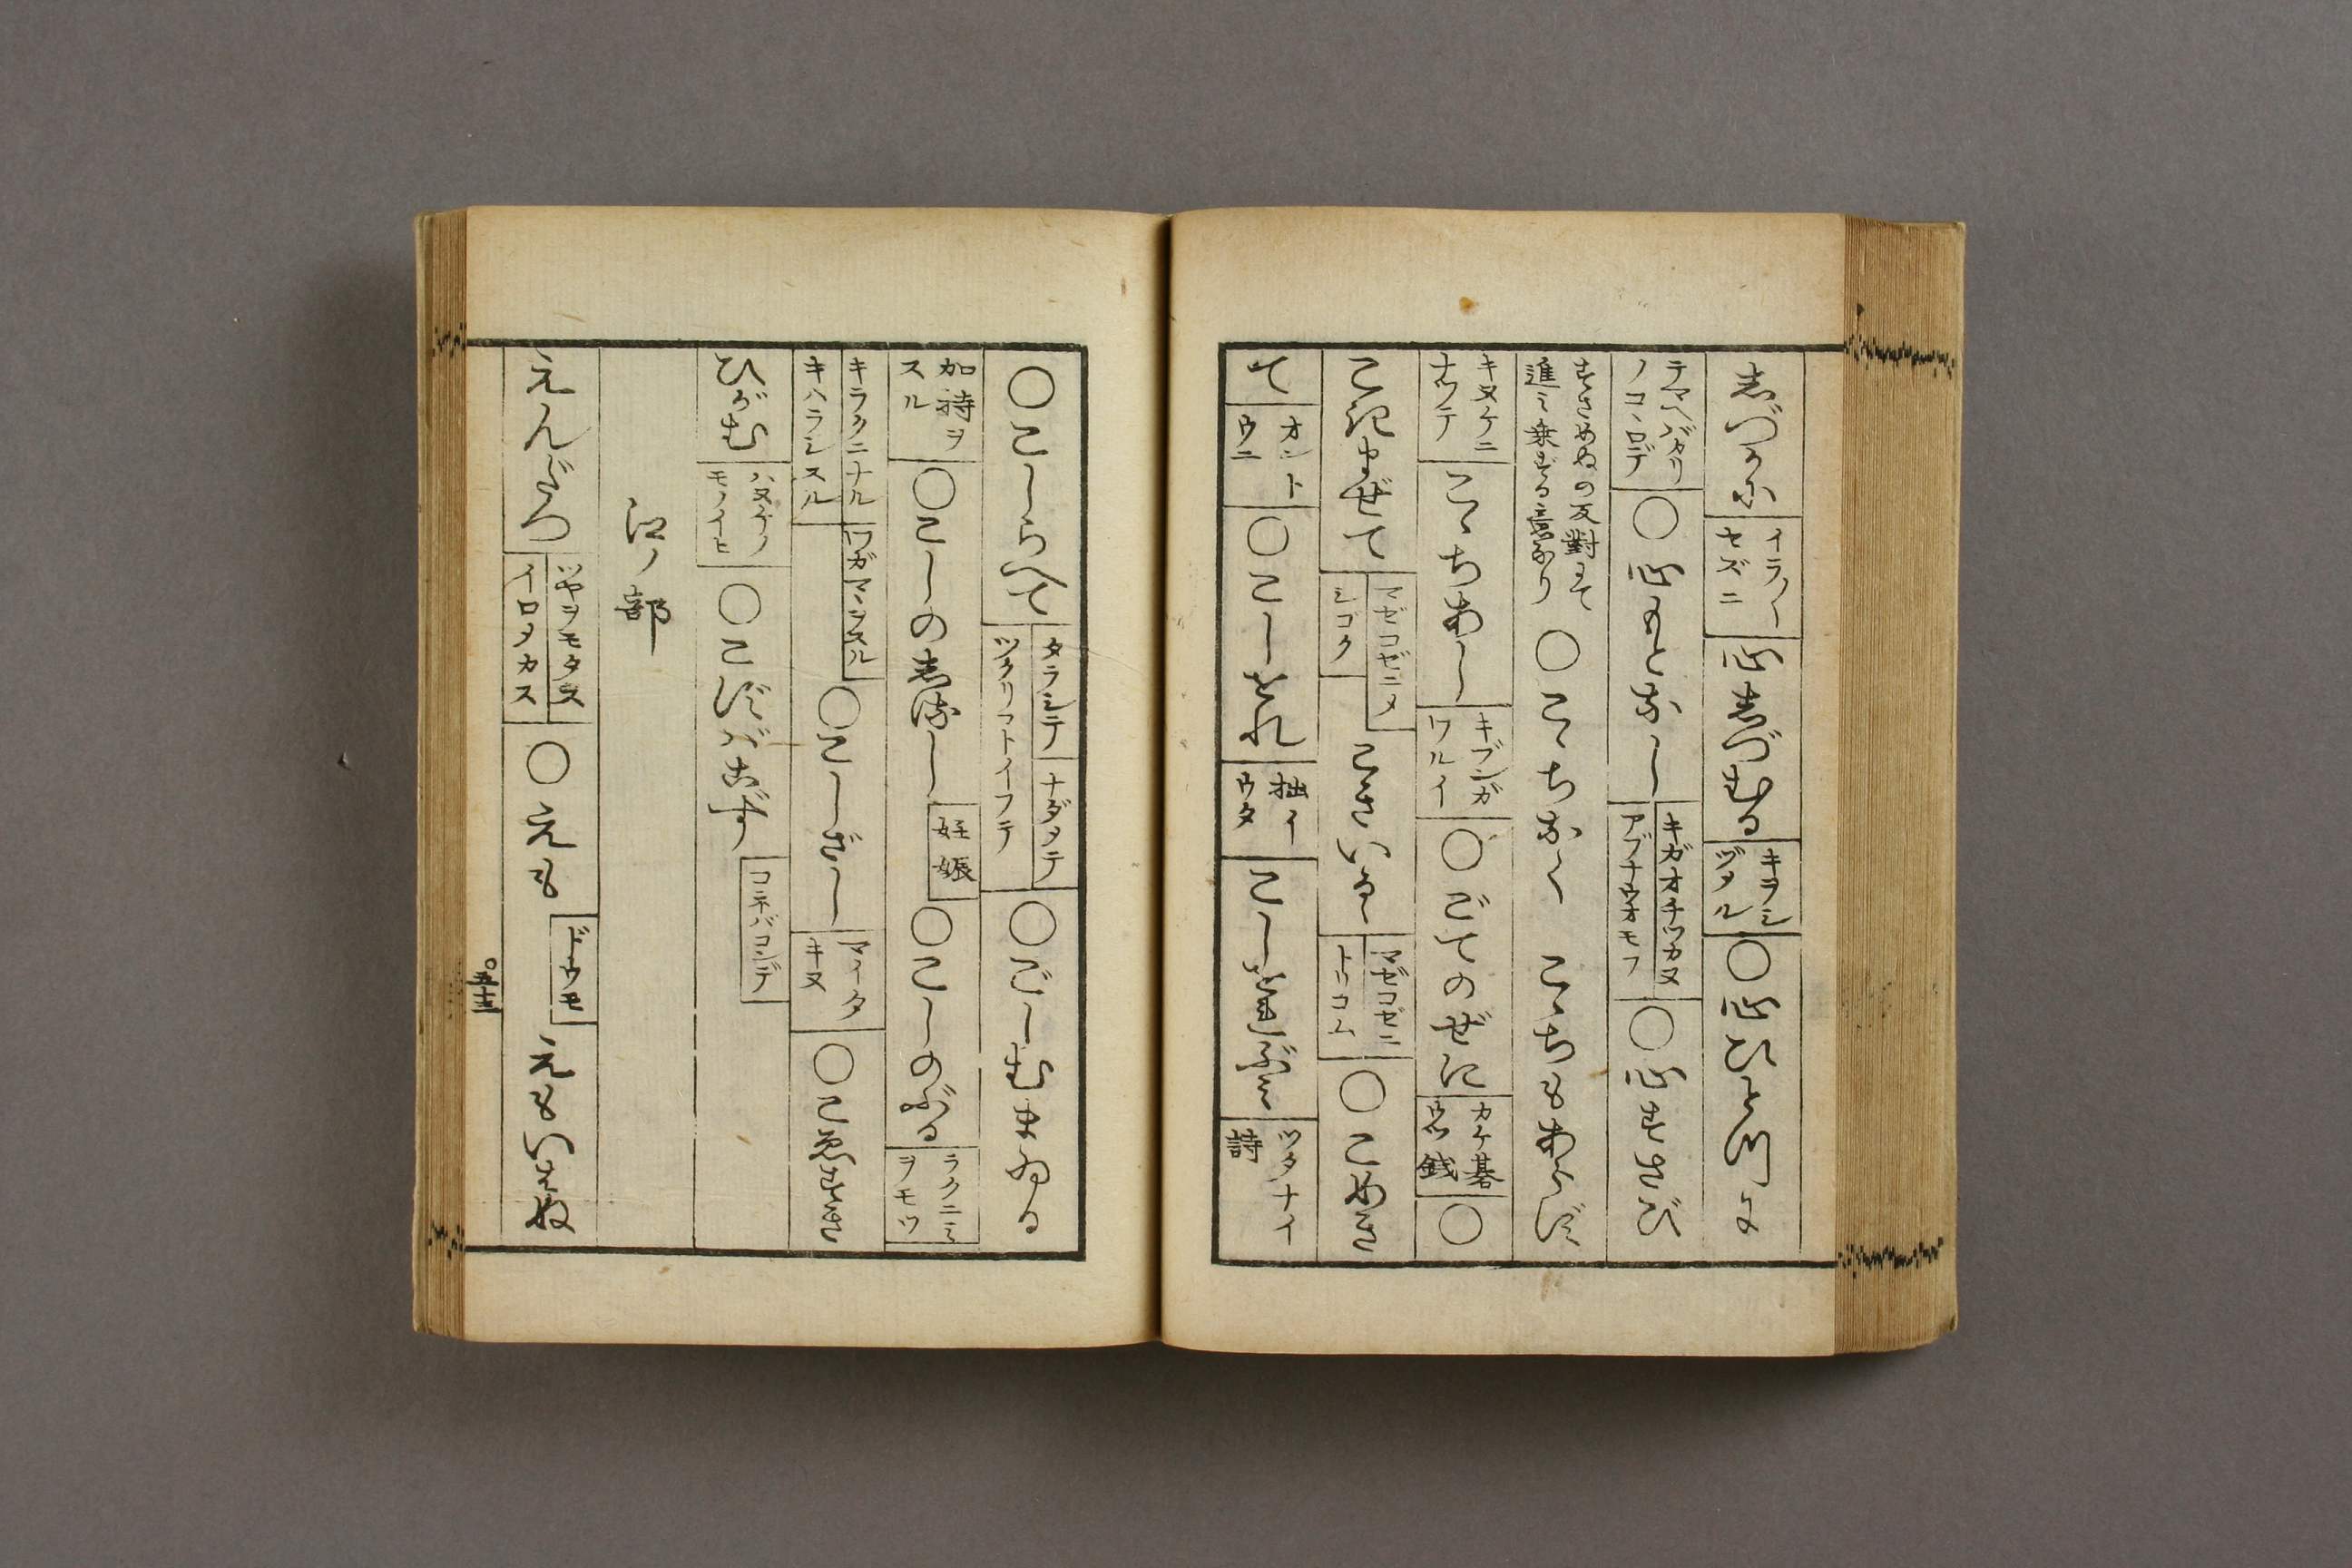 志づかに イライラセズニ 心志づむる キヲシヅメル 〇心ひとつに
テマヘバカリノコヽロデ 〇心もとなし キガオチツカヌ アブナウオモフ 〇心すさび
すさめぬの反對にて進ミ乗ずる意なり 〇こゝちなく こゝちもあらず
キヌケニナツテ こゝちあし キブンガワルイ 〇ごてのぜに カケ碁ウツ銭 〇
こきまぜて マゼコゼニメ シゴク こきいる マゼコゼニトリコム 〇こめき
て オントウニ 〇こしをれ 拙イウタ こしをれぶミ ツタナイ詩
〇こしらへて タラシテ ナダメテ ツクリコトイフテ 〇ごしむまゐる
加持ヲスル 〇こしのしるし 妊娠 〇こしのぶる ラクニミヲモツ
キラクニナル ワガマヽヲスル キハラシスル 〇こしざし マイタキヌ 〇こゑひき
ひがむ ハヌケノモノイヒ 〇こずばあらず コネバコンデ
江ノ部
えんだつ ツヤヲモタス イロメカス 〇えも ドウモ えもいはぬ
〇五十三